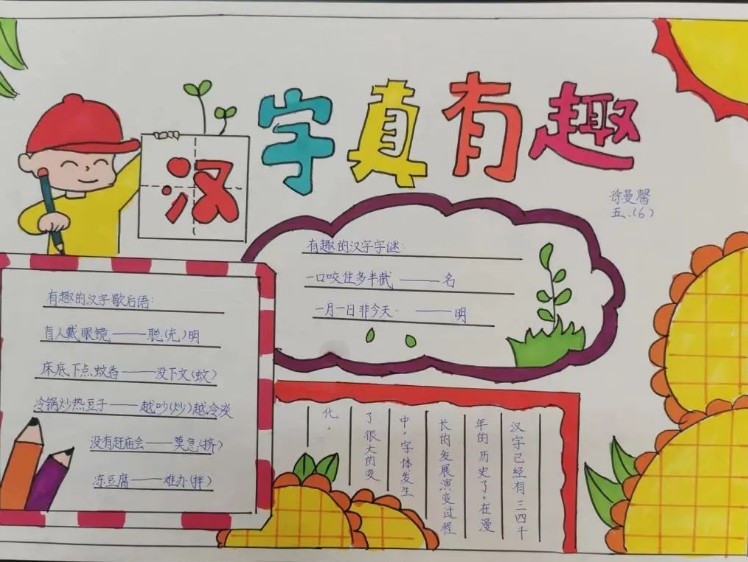 汉字真有趣
诗曼馨
五、(6)
有趣的汉字字谜:
一口咬住多半截——名
一月一日非今天——明
有趣的汉字歇后语:
盲人戴眼镜——聪(充)明
床底下点蚊香——没下文(蚊)
冷锅炒热豆子——越吵(炒)越冷淡
没有赶庙会——
冻豆腐——难办(拌)
汉字已经有三四千
年的历史了,在漫
长的发展演变过程
中,字体发生
了很大的变
化。